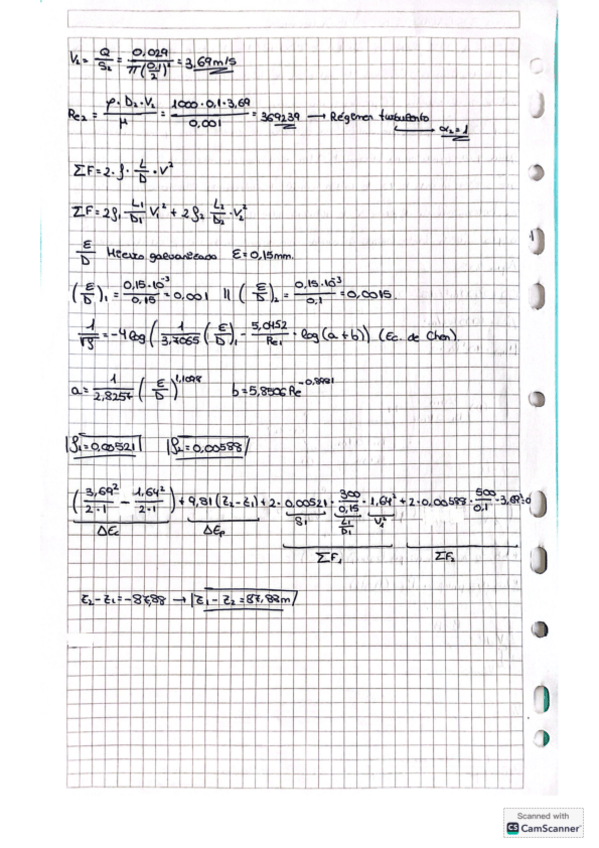 V₂ = Q/S₂ = 0,029/(π(0,1/2)²) = 3,69 m/s
Re₂ = (ρ·D₂·V₂)/μ = (1000·0,1·3,69)/0,001 = 369239 → Régimen turbulento
α₂=1
ΣF = 2·f·L/D·V²
ΣF = 2f₁ L₁/D₁ V₁² + 2f₂ L₂/D₂·V₂²
ε/D Hierro galvanizado ε=0,15mm.
(ε/D)₁ = 0,15·10⁻³/0,15 = 0,001 || (ε/D)₂ = 0,15·10⁻³/0,1 = 0,0015.
1/√f = -4log(1/3,7065 (ε/D)₁ - 5,0452/Re₁ · log(a+b)) (Ec. de Chen).
a = 1/2,8257 (ε/D)^1,1098 b = 5,8506 Re^-0,8981
f₁=0,00521 f₂=0,00588
(3,69²/2·1 - 1,64²/2·1) + 9,81(z₂-z₁) + 2·0,00521·300/0,15·1,64² + 2·0,00588·500/0,1·3,69²=0
ΔEc ΔEp f₁ L₁/D₁ V₁²
ΣF₁ ΣF₂
z₂-z₁=-87,88 → z₁-z₂=87,88m
Scanned with
CS CamScanner